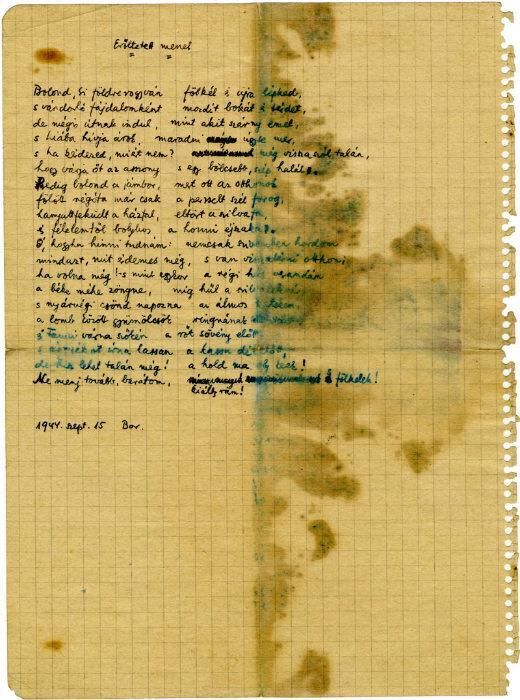 Erőltetett menet
Bolond, ki földre rogyván fölkél s ujra lépked,
s vándorló fájdalomként mozdít bokát s térdet,
de mégis útnak indul, mint akit szárny emel,
s hiába hívja árok, maradni úgyse mer,
s ha kérdezed, miért nem? még visszaszól talán,
hogy várja őt az asszony s egy bölcsebb, szép halál.
Pedig bolond a jámbor, mert ott az otthonok
fölött régóta már csak a perzselt szél forog,
hanyattfeküdt a házfal, eltört a szilvafa,
s félelemtől bolyhos a honni éjszaka.
Ó, hogyha hinni tudnám: nemcsak szivemben hordom
mindazt, mit érdemes még, s van visszatérni otthon;
ha volna még! s mint egykor a régi hűs verandán
a béke méhe zöngne, míg hűl a
s nyárvégi csönd napozna az álmos
a lomb között gyümölcsök ringnának
s Fanni várna szőkén a rőt sövény előtt,
s árnyékot írna lassan a lassu délelőtt,
de hisz lehet talán még! a hold ma oly
Ne menj tovább, barátom, s fölkelek!
kiálts rám!
1944. szept. 15 Bor.